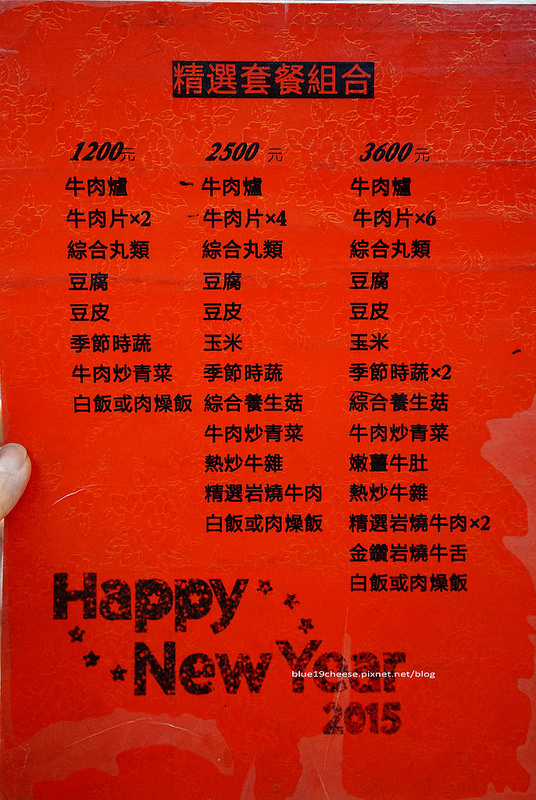 精選套餐組合
1200元
牛肉爐
牛肉片×2
綜合丸類
豆腐
豆皮
季節時蔬
牛肉炒青菜
白飯或肉燥飯
2500 元
牛肉爐
牛肉片×4
綜合丸類
豆腐
豆皮
玉米
季節時蔬
綜合養生菇
牛肉炒青菜
熱炒牛雜
精選岩燒牛肉
白飯或肉燥飯
3600 元
牛肉爐
牛肉片×6
綜合丸類
豆腐
豆皮
玉米
季節時蔬×2
綜合養生菇
牛肉炒青菜
嫩薑牛肚
熱炒牛雜
精選岩燒牛肉×2
金鑽岩燒牛舌
白飯或肉燥飯
Happy
New Year
blue19cheese.pixnet.net/blog
2015